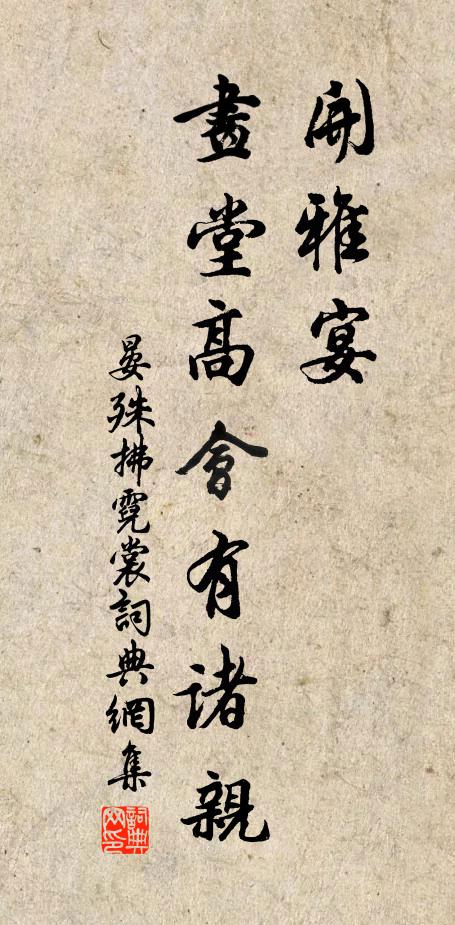 開雅宴
畫堂高會有諸親
晏殊拂霓裳詞典網集
詞典网印